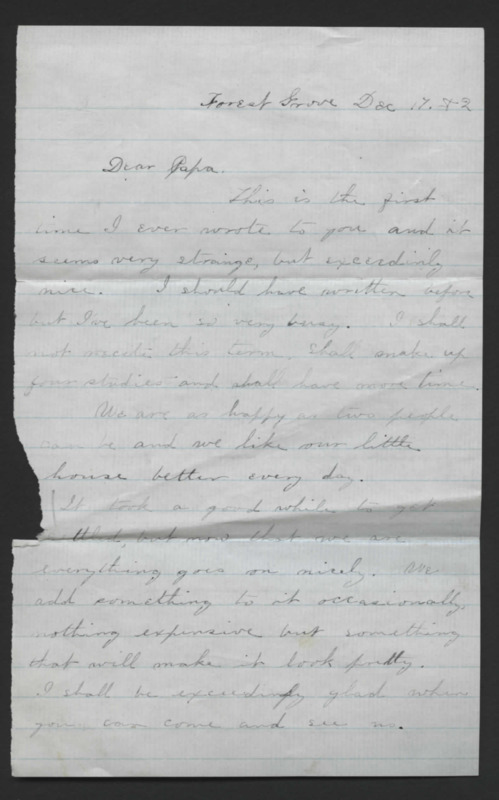 Forest Grove Dec 17. 82
Dear Papa.
This is the first
time I ever wrote to you and it
seems very strange, but exceedinly
nice. I should have written before
but I've been so very busy. I shall
not recite this term. Shall make up
four studies and shall have more time.
We are as happy as two people
can be and we like our little
house better every day.
It took a good while to get
ttled, but now that we are
everything goes on nicely. We
add something to it occasionally,
nothing expensive but something
that will make it look pretty.
I shall be exceedingly glad when
you can come and see us.